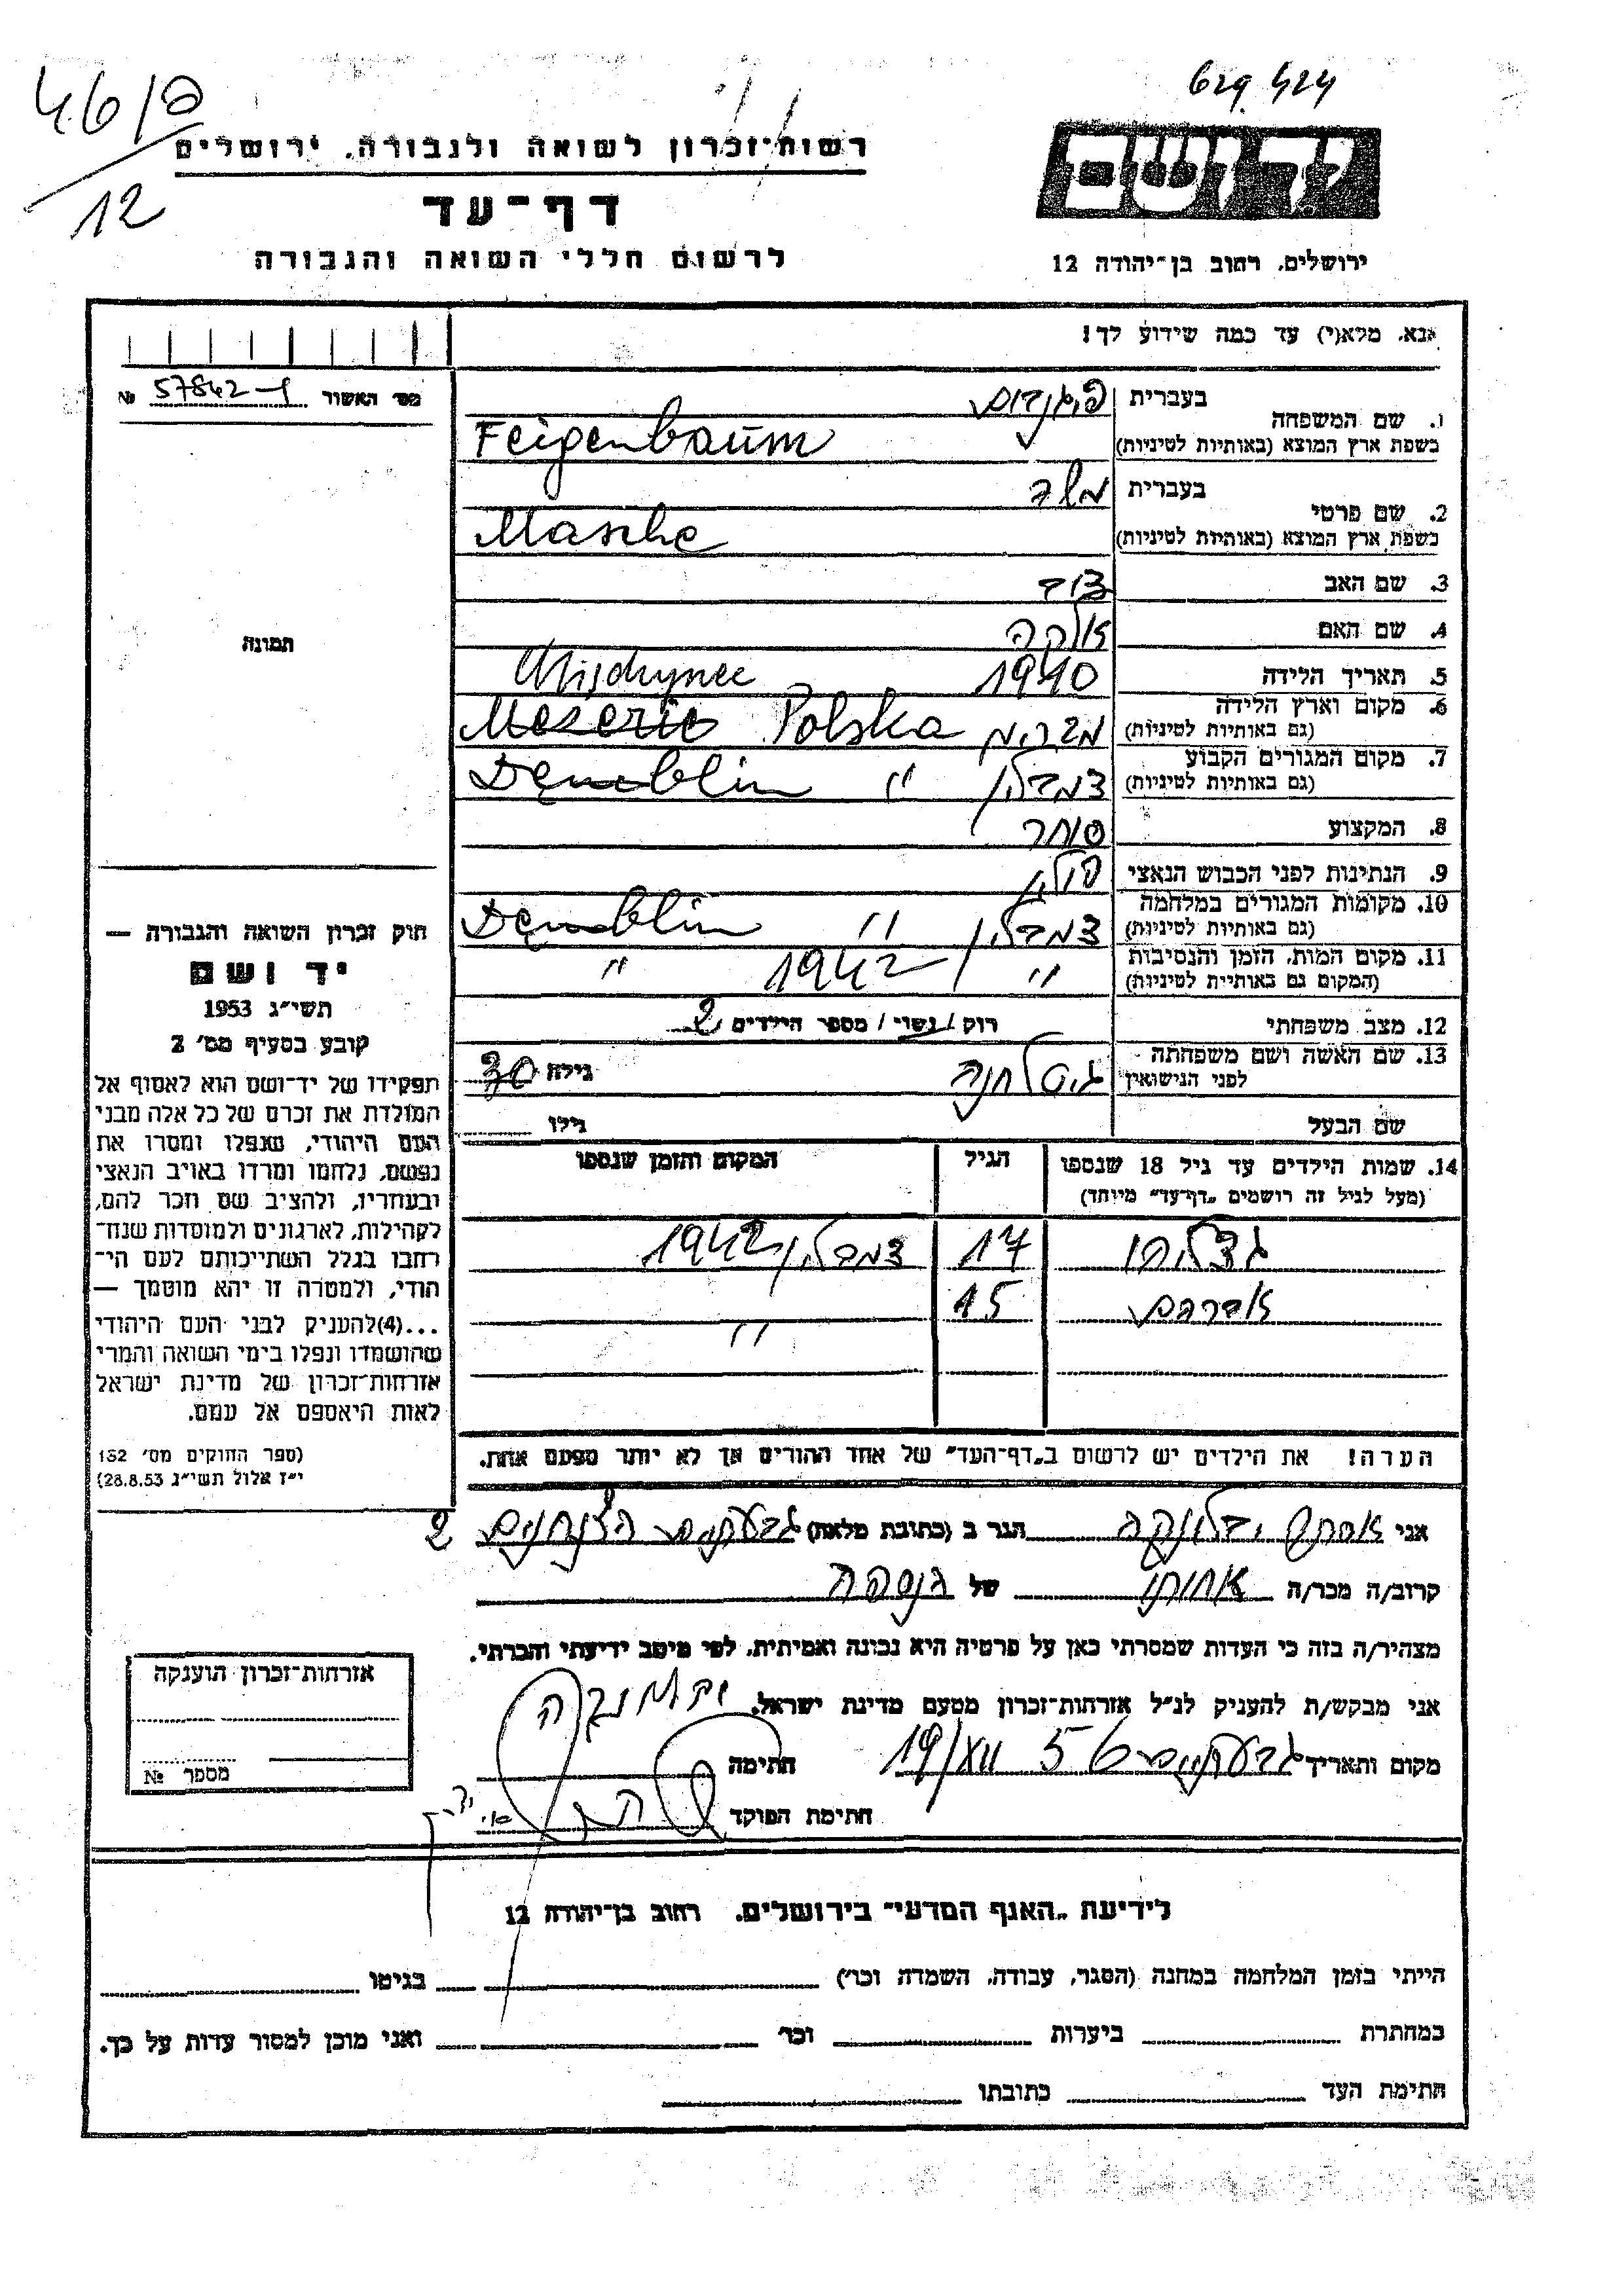 46/פ
12
רשות־זכרון לשואה ולגבורה, ירושלים
דף־עד
לרשום חללי השואה והגבורה
יד ושם
ירושלים, רחוב בן־יהודה 12
אנא, מלא(י) עד כמה שידוע לך!
מס׳ האשור 57842-1 №
תמונה
1. שם המשפחה
בעברית פיגנבוים
בשפת ארץ המוצא (באותיות לטיניות) Feigenbaum
2. שם פרטי
בעברית משה
בשפת ארץ המוצא (באותיות לטיניות) Masche
3. שם האב דוד
4. שם האם
5. תאריך הלידה 1910
6. מקום וארץ הלידה
(גם באותיות לטיניות) Polska Meseric
7. מקום המגורים הקבוע
(גם באותיות לטיניות) דמבלין " Demblin
8. המקצוע סוחר
9. הנתינות לפני הכבוש הנאצי פולין
10. מקומות המגורים במלחמה
(גם באותיות לטיניות) דמבלין " Demblin
11. מקום המות, הזמן והנסיבות
(המקום גם באותיית לטיניות) " 1942 "
12. מצב משפחתי רוק / נשוי / מספר הילדים 2
13. שם האשה ושם משפחתה
לפני הנישואין חנה גילה 30
שם הבעל גילו
14. שמות הילדים עד גיל 18 שנספו
(מעל לגיל זה רושמים "דף־עד" מיוחד)
הגיל
המקום והזמן שנספו
17 דמבלין 1942
אברהם 15 "
הערה! את הילדים יש לרשום ב"דף־העד" של אחד ההורים אך לא יותר מפעם אחת.
חוק זכרון השואה והגבורה —
יד ושם
תשי״ג 1953
קובע בסעיף מס׳ 2
תפקידו של יד־ושם הוא לאסוף אל
המולדת את זכרם של כל אלה מבני
העם היהודי, שנפלו ומסרו את
נפשם, נלחמו ומרדו באויב הנאצי
ובעוזריו, ולהציב שם וזכר להם,
לקהילות, לארגונים ולמוסדות שנח־
רחבו בגלל השתייכותם לעם הי־
הודי, ולמטרה זו יהא מוסמך —
...(4)להעניק לבני העם היהודי
שהושמדו ונפלו בימי השואה והמרי
אזרחות־זכרון של מדינת ישראל
לאות היאספם אל עמם.
(ספר החוקים מס׳ 132
י״ז אלול תשי״ג 28.8.53)
אני הגר ב (כתובת מלאה) גבעתיים 2
קרוב/ה מכר/ה של
מצהיר/ה בזה כי העדות שמסרתי כאן על פרטיה היא נכונה ואמיתית, לפי מיטב ידיעתי והכרתי.
אני מבקש/ת להעניק לנ״ל אזרחות־זכרון מטעם מדינת ישראל.
מקום ותאריך גבעתיים 19/XII 56 חתימה
חתימת הפוקד
אזרחות־זכרון הוענקה
מספר №
לידיעת "האגף המדעי" בירושלים, רחוב בן־יהודה 12
הייתי בזמן המלחמה במחנה (הסגר, עבודה, השמדה וכו׳) בגיטו
במחתרת ביערות וכו׳ ואני מוכן למסור עדות על כך.
חתימת העד כתובתו